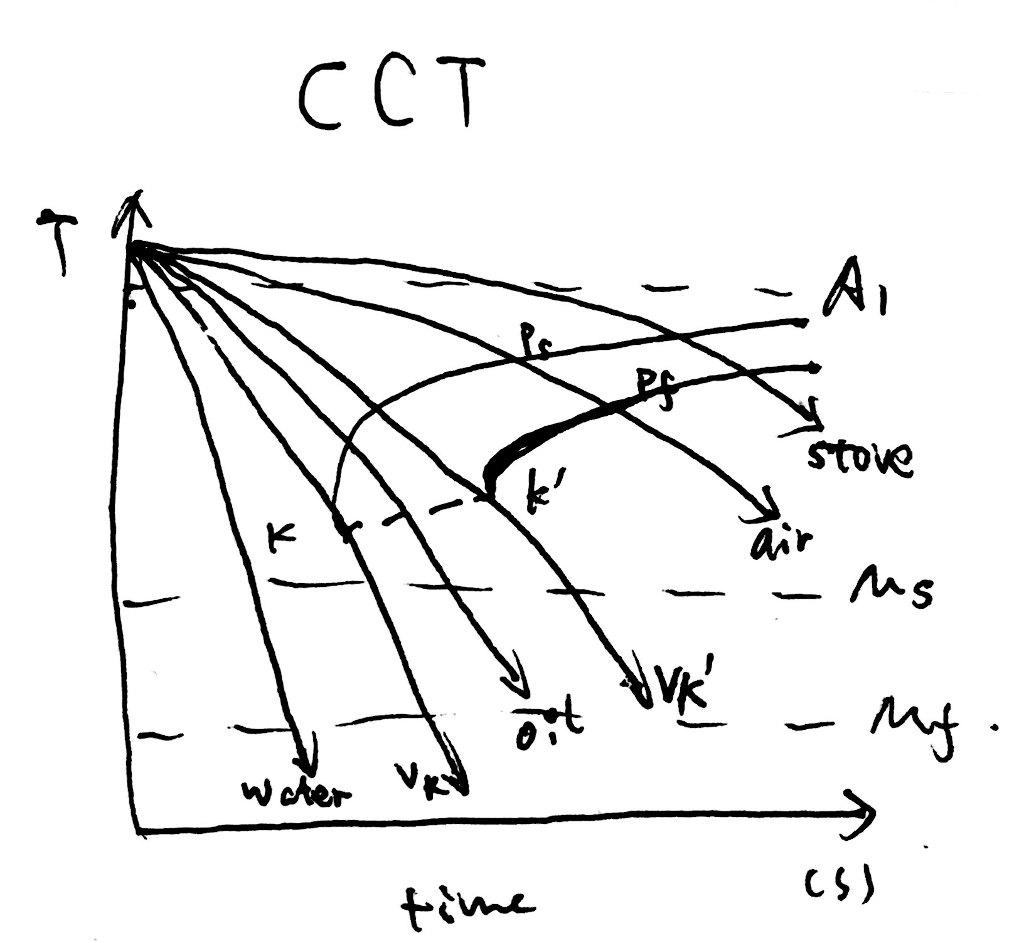 CCT
T
A1
Ps
Pf
stove
K
K'
air
Ms
VK'
Mf
oil
water
VK
(s)
time